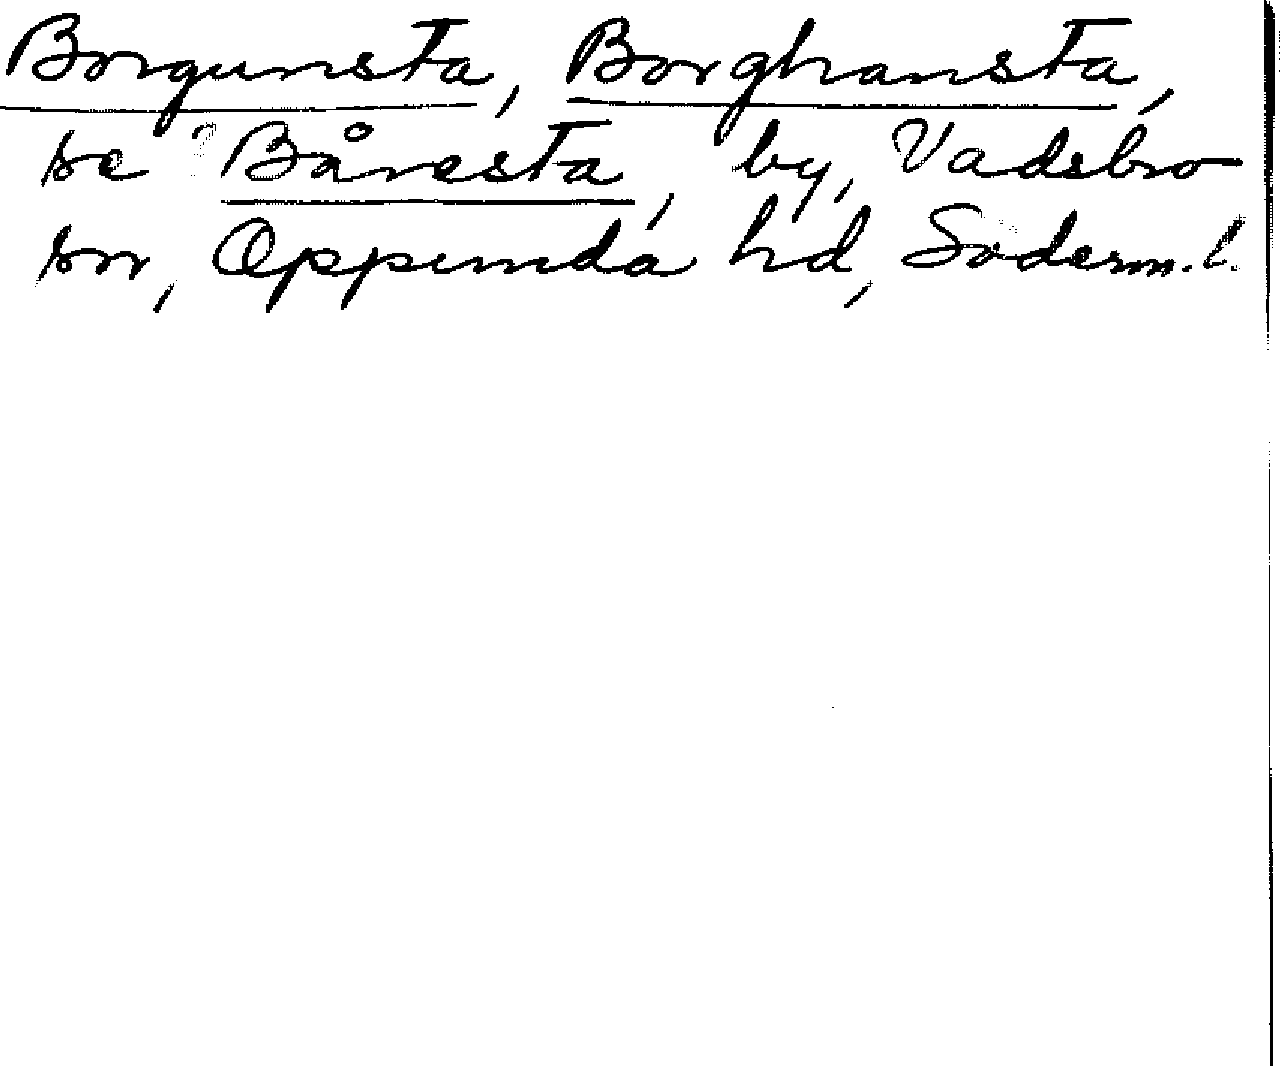 Borgunsta, Borghansta,
se ? Båresta, by, Vadsbro
sn, Oppunda hd, Söderm. l.